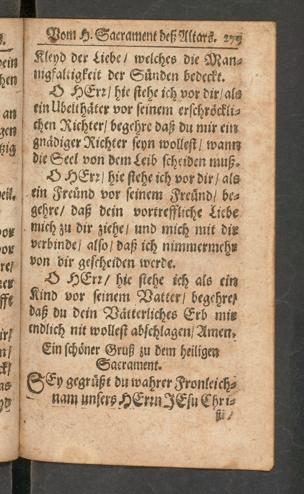 Vom H. Sacrament deß Altars. 279
Kleyd der Liebe / welches die Man-
nigfaltigkeit der Sünden bedeckt.
O HErz / hie stehe ich vor dir / als
ein Übelthäter vor seinem erschröckli-
chen Richter / begehre daß du mir ein
gnädiger Richter seyn wollest / wann
die Seel von dem Leib scheiden muß.
O HErz / hie stehe ich vor dir / als
ein Freünd vor seinem Freünd / be-
gehre / daß dein vortreffliche Liebe
mich zu dir ziehe / und mich mit dir
verbinde / also / daß ich nimmermehr
von dir gescheiden werde.
O HErz / hie stehe ich als ein
Kind vor seinem Vatter / begehre /
daß du dein Vätterliches Erb mir
endlich nit wollest abschlagen / Amen.
Ein schöner Gruß zu dem heiligen
Sacrament.
SEy gegrüßt du wahrer Fronleich-
nam unsers HErrn JEsu Chri-
sti /